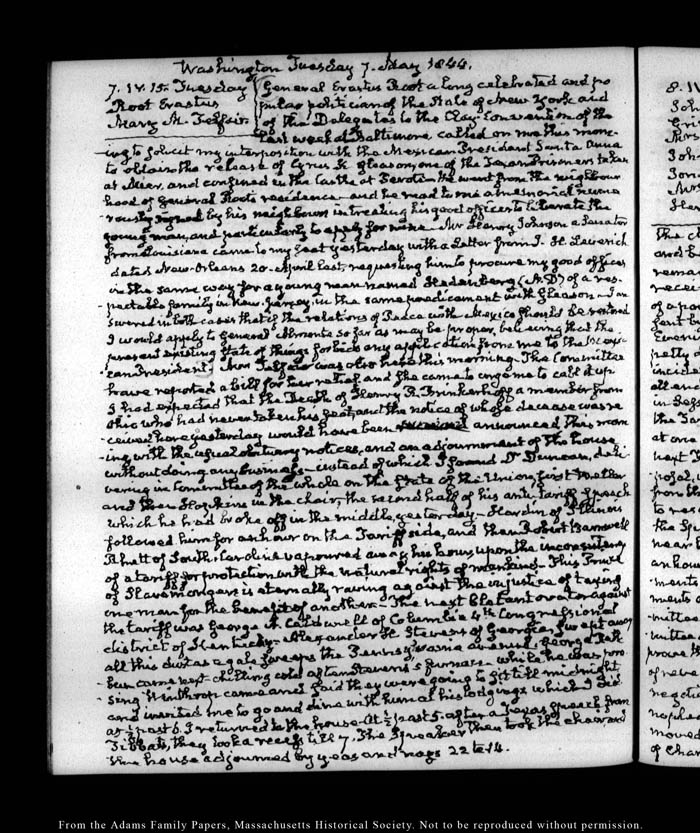 Washington Tuesday 7. May 1844.
7. IV. 15. Tuesday
Root Erastus
Mary M. Telfair
General Erastus Root a long celebrated and po
pular politician of the State of New York and
of the Delegates to the Clay Convention of the
last week at Baltimore called on me this morn-
ing to solicit my interposition with the Mexican President Santa Anna
to obtain the release of Cyrus K. Gleason one of the Texan Prisoners taken
at Mier, and confined in the Castle at Perote. He went from the neighbour
hood of General Root's residence and he read to me a memorial nume
rously signed by his neighbours intreating his good offices to liberate the
young man, and particularly to apply for mine. Mr Henry Johnson a Senator
from Louisiana came to my seat yesterday with a Letter from J. H. Leverich
dated New-Orleans 20. April last, requesting him to procure my good offices
in the same way for a young man named Hedenberg (A. D.) of a res-
pectable family in New Jersey, in the same predicament with Gleason. I an
swered in both cases that if the relations of Peace with Mexico should be restored
I would apply to General Almonte so far as may be proper, believing that the
present existing state of things forbids any application from me to the Mexi-
can President. Mrs Telfair was also here this morning. The Committee
have reported a bill for her relief and she came to urge me to call it up
I had expected that the Death of Henry R. Brinkerhoff a member from
Ohio who had never taken his seat, and the notice of whose decease was re
ceived here yesterday would have been announced this morn
-ing with the usual obituary notices, and an adjournment of the house
without doing any business—instead of which I found Dr Duncan, deli-
vering in Committee of the whole on the State of the Union, first Weller
and then Hopkins in the chair, the second half of his anti-tariff speech
which he had broke off in the middle, yesterday—Hardin of Illinois
followed him for an hour on the Tariff side, and then Robert Barnwell
Rhett of South-Carolina vapoured away his hour, upon the inconsistency
of a tariff for protection with the natural rights of mankind. This
of Slavemongers is eternally raving against the injustice of taxing
one man for the benefit of another—The next blatant orator against
the tariff was George A. Caldwell of Columbia 4th Congressional
district of Kentucky. Alexander H. Stevens of Georgia, swept away
all this dust as a gale sweeps the Pennsylvania avenue. George Rath
bun came next—chilling cold after Stevens's furnace—while he was pro-
sing Winthrop came and said they were going to sit till midnight
and invited me to go and dine with him at his lodgings which I did
at ½ past 5. I returned to the house at ½ past 5. after a speech from
Tibbats, they took a recess till 7. The Speaker then took the chair and
the house adjourned by yeas and nays 22 to 14.
From the Adams Family Papers, Massachusetts Historical Society. Not to be reproduced without permission.